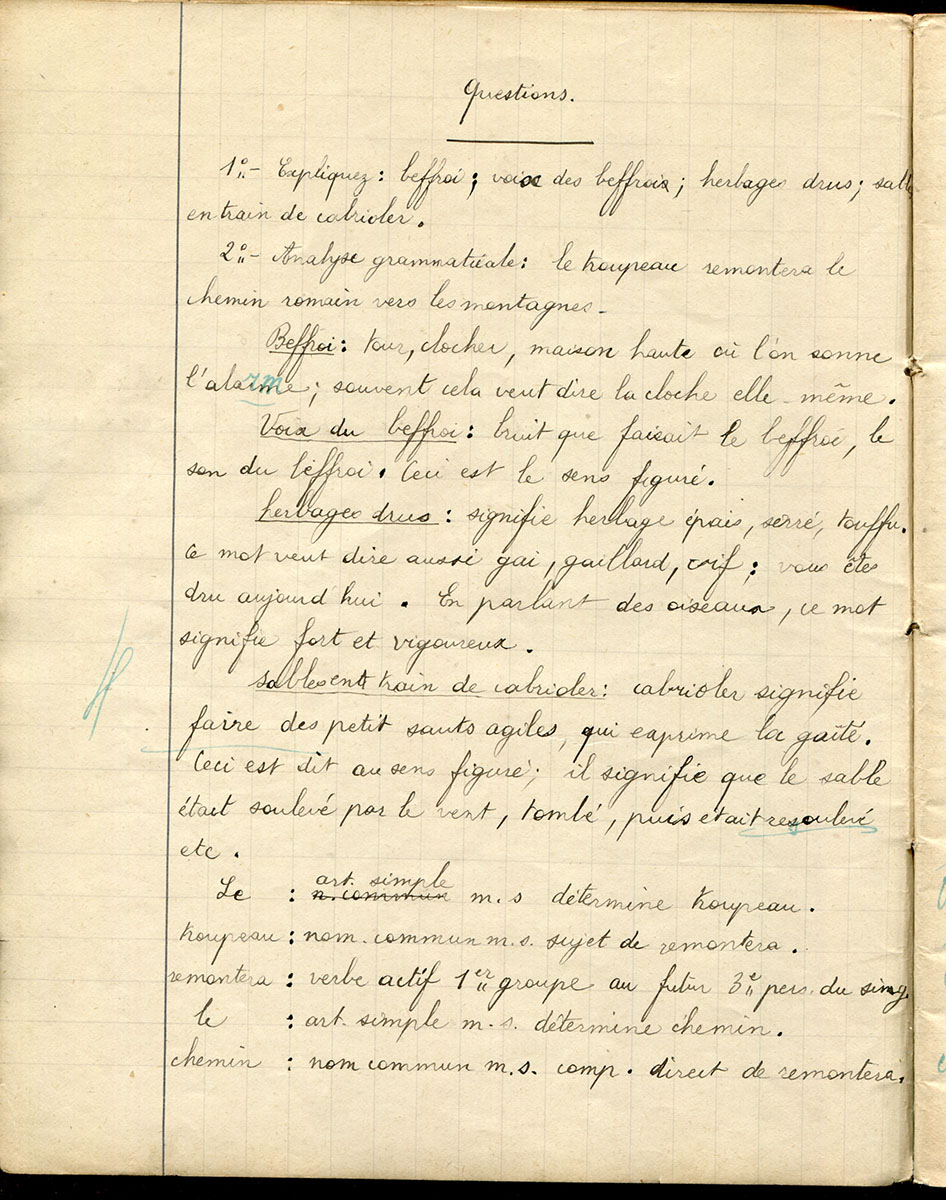 Questions.
1º - Expliquez : beffroi ; voix des beffrois ; herbages drus ; sabl
en train de cabrioler.
2º - Analyse grammaticale : le troupeau remontera le
chemin romain vers les montagnes -
Beffroi : tour, clocher, maison haute où l'on sonne
l'alarme ; souvent cela veut dire la cloche elle-même.
Voix du beffroi : bruit que faisait le beffroi, le
son du beffroi. Ceci est le sens figuré.
herbages drus : signifie herbage épais, serré, touffu.
Ce mot veut dire aussi gai, gaillard, vif : vous êtes
dru aujourd'hui. En parlant des oiseaux, ce mot
signifie fort et vigoureux.
sables en train de cabrioler : cabrioler signifie
faire des petit sauts agiles, qui exprime la gaîté.
Ceci est dit au sens figuré ; il signifie que le sable
était soulevé par le vent, tombé, puis était resoulevé
etc.
art. simple
Le : n. commun m.s détermine troupeau.
troupeau : nom commun m.s. sujet de remontera.
remontera : verbe actif 1er groupe au futur 3e pers. du sing
le : art. simple m.s. détermine chemin.
chemin : nom commun m.s. comp. direct de remontera.